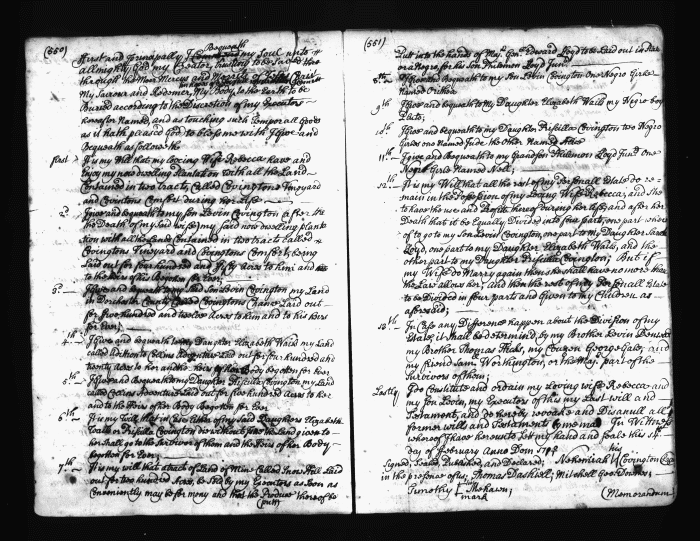 (550)
Bequeath
First and Principally I my Soul unto
allmighty God my Creator, trusting to be Saved thro
through the Mercies and of
My Saviour and Redeemer, My Body, to the Earth to be
Buried according to the Discretion of my Executors
hereafter Named, and as touching such Temporall Goods
as it hath pleased God to bless me with I give and
Bequeath as followeth
first It is my Will that my Loveing Wife Rebecca have and
Enjoy my now dwelling Plantation with all the Land
Contained in two tracts Called Covingtons Vineyard
and Covingtons Comfort during her Life
2 I give and bequeath to my Son Levin Covington after the
the Death of my Said wife my Said now dwelling plan
tion with all the Lands Contained in two tracts called
Covingtons Vineyard and Covingtons Comfort, being
Laid out for four hundred and fifty acres to him and
to the heirs of his Body for Ever
3 I give and bequeath to my Said Son Levin Covington my Land
in Dorchester County Called Covingtons Chance Laid out
for five hundred and twelve acres to him and to his heirs
for Ever;
4th I give and bequeath to my Daughter Elizabeth Wails my Land
called Addition to Adventure Laid out for four hundred and
twenty acres to her and the Heirs of her Body begotten for Ever
5th I give and Bequeath my Daughter Priscilla Covington my Land
called Adventure Laid out for five hundred acres to her
and to the Heirs of her Body Begotten for Ever
6th It is my Will that in Case Either of my Said Daughters Elizabeth
Wails or Priscilla Covington die without Issue the Land given to
her Shall go to the Survivor of them and the Heirs of her Body
begotten for Ever;
7th It is my will that a tract of Land of Mine Called Snow Hill Laid
out for two hundred Acres, be Sold by my Executors as Soon as
Conveniently may be for mony and that the Produce thereof be
(putt
(551)
Put into the hands of Maj. Genl. Edward Loyd to be laid out in
or a Negro for his Son Philemon Loyd Junr
8th I give and bequeath to my Son Levin Covington One Negro Girl
Named
9th I give and bequeath to my Daughter Elizabeth Wails my Negro boy
10th I give and bequeath to my Daughter Priscilla Covington two Negro
Girles one Named Jude the Other Named
11th I give and bequeath to my Grandson Philemon Loyd Junr One
Negro Girle Named Nell;
12 It is my Will that all the rest of my Personall Estate do re-
main in the Possession of my Loving Wife Rebecca, and She
to have the use and Profits thereof during her life and after her
Death that it be Equally Divided into four parts, one part where-
of to go to my Son Levin Covington, one part to my Daughter Sarah
Loyd, one part to my Daughter Elizabeth Wails, and the
other part to my Daughter Priscilla Covington; But if
my Wife do Marry again then she shall have no more than
the Law allows her, and then the rest of my Personall Estate
to be Divided in four parts and Given to my Children as
aforesaid;
13th In Case any Difference happen about the Division of my
Estate, it shall be determined, by my Brother Levin Denwood
my Brother Thomas my Couzen George Gale, and
my friend Saml. Worthington, or the Maj. part of the
Survivors of them;
Lastly I do Constitute and ordain my Loving wife Rebecca and
my Son Levin, my Executors of this my Last will and
Testament, and do hereby revoake and Disanull all
former wills and Testaments by me mad In Witness
whereof I have hereunto Set my hand and Seale this 14th
day of February Anno Dom
his
Signed, Sealed, Published, and Declared; Nehemiah Covington
in the presence of us; Thomas Dashiell; Mitchell
Timothy
mark
(Memorandum